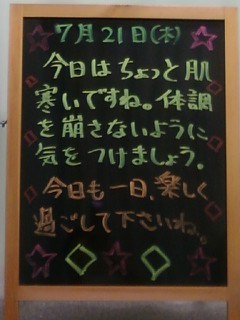 7月21日(木)
今日はちょっと肌
寒いですね。体調
を崩さないように
気をつけましょう。
今日も一日、楽しく
過ごして下さいね。